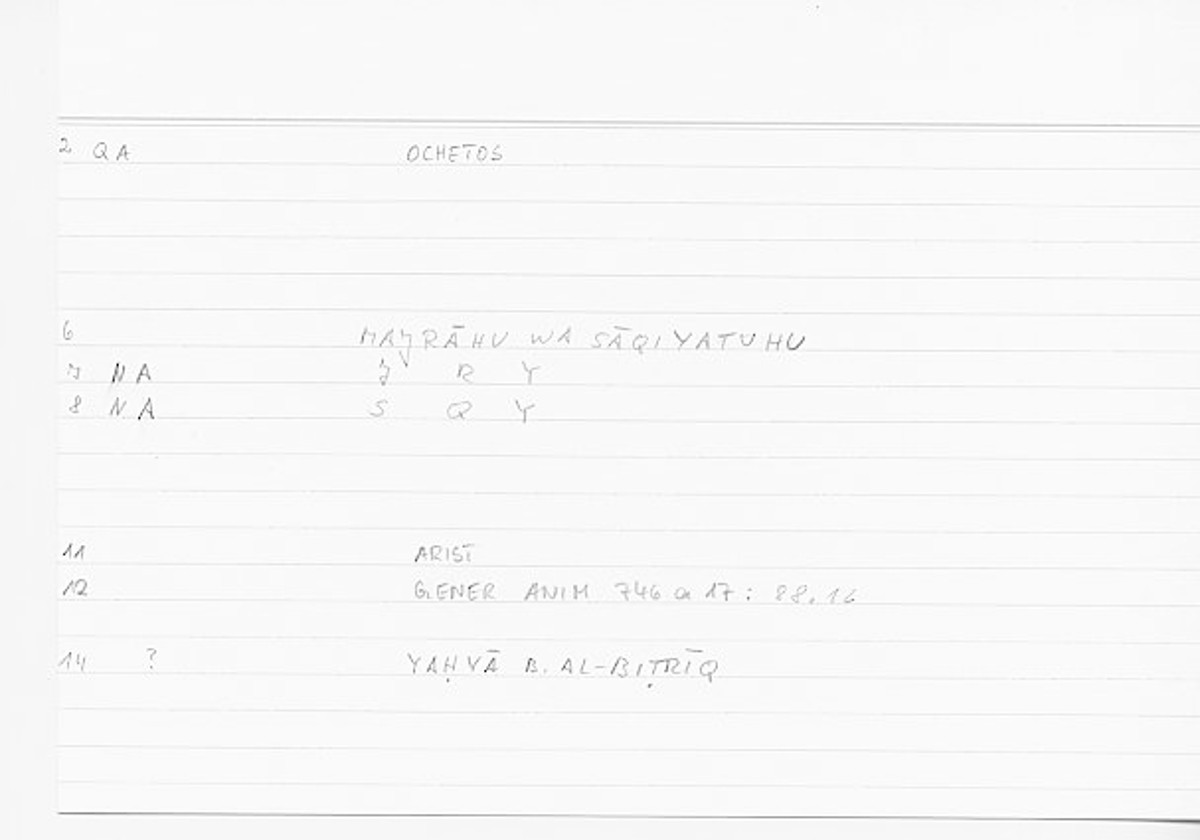 2 QA OCHETOS
6 MAJRĀHU WA SĀQIYATUHU
7 NA J R Y
8 NA S Q Y
11 ARIST
12 GENER ANIM 746 a 17: 88.16
14 ? YAḤYĀ B. AL-BIṬRĪQ